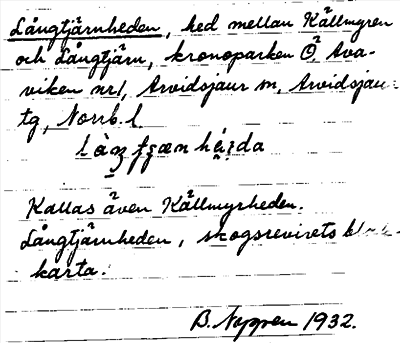 Långtjärnheden, hed mellan Källmyren
och Långtjärn, kronoparken Ö. Ava-
viken nr1, Arvidsjaur sn, Arvidsjaur
tg, Norrb. l.
Kallas även Källmyrheden.
Långtjärnheden, skogsrevirets
karta.
B. Nygren 1932.